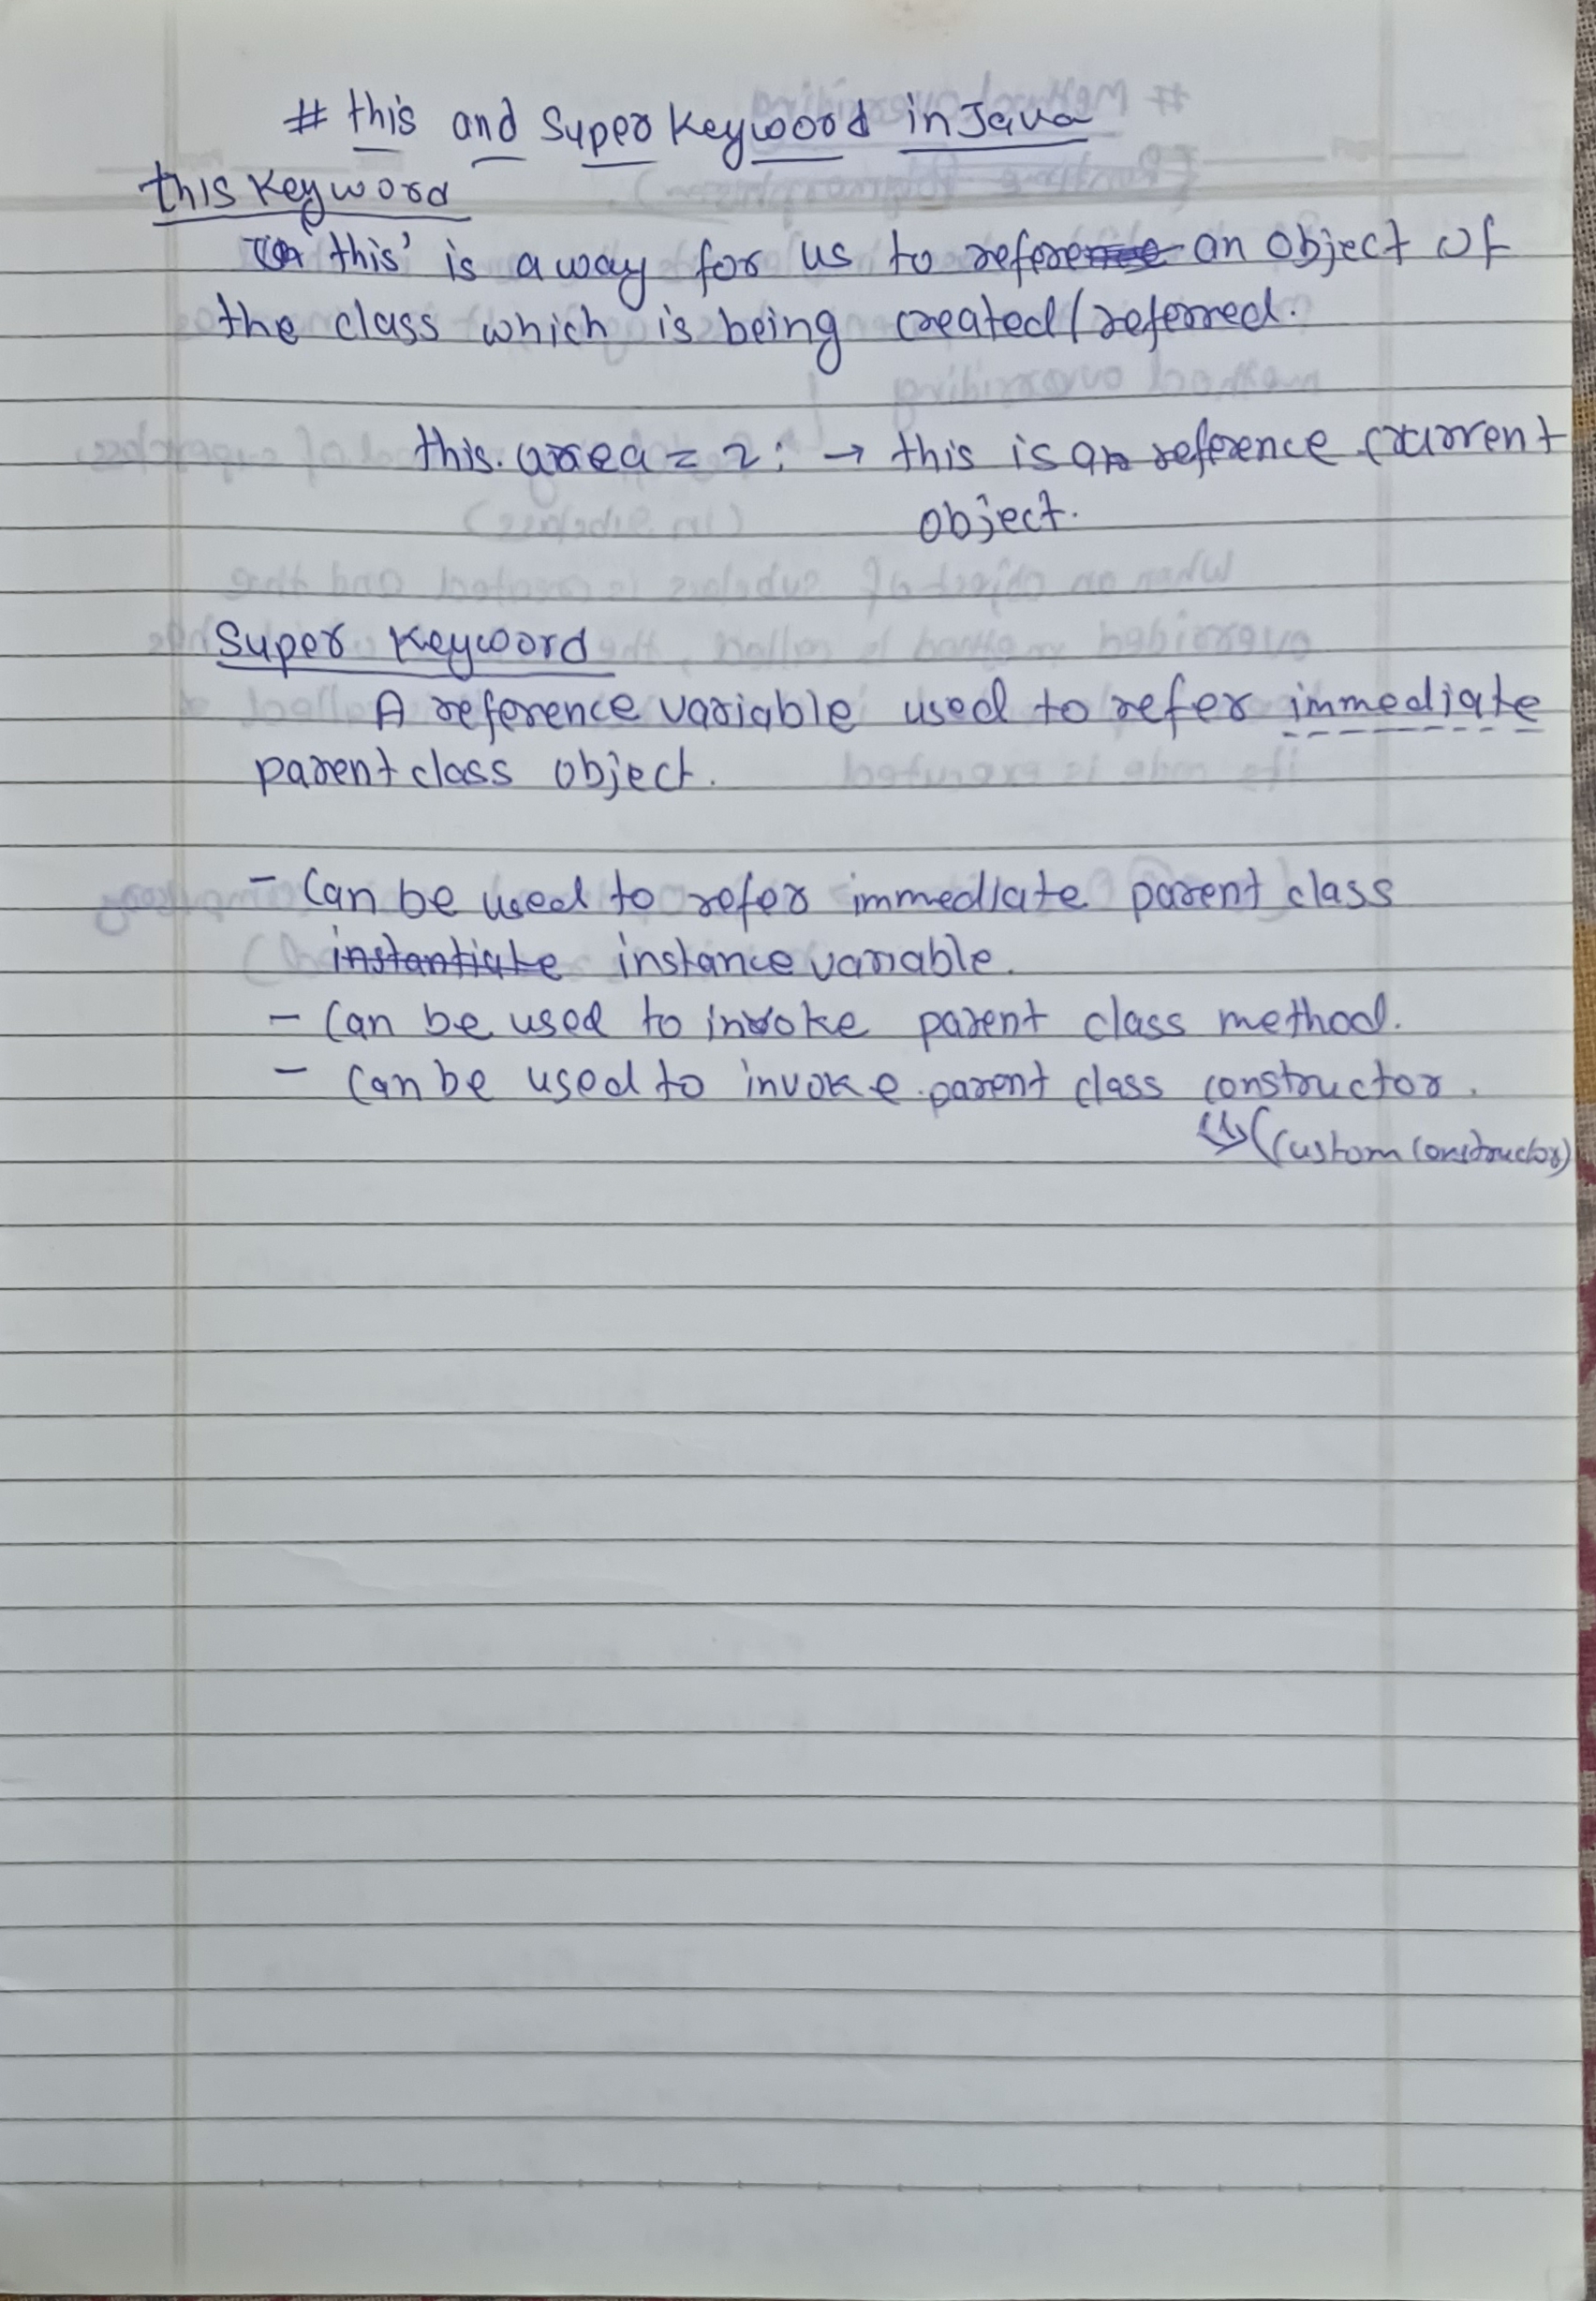 # this and Super Keyword in Java
this Keyword
'this' is a way for us to refer an object of
the class which is being created/referred.
this.area = 2; → this is a reference current
object.
Super Keyword
A reference variable used to refer immediate
parent class object.
- Can be used to refer immediate parent class
instantiate instance variable.
- Can be used to invoke parent class method.
- Can be used to invoke parent class constructor.
(Custom Constructor)